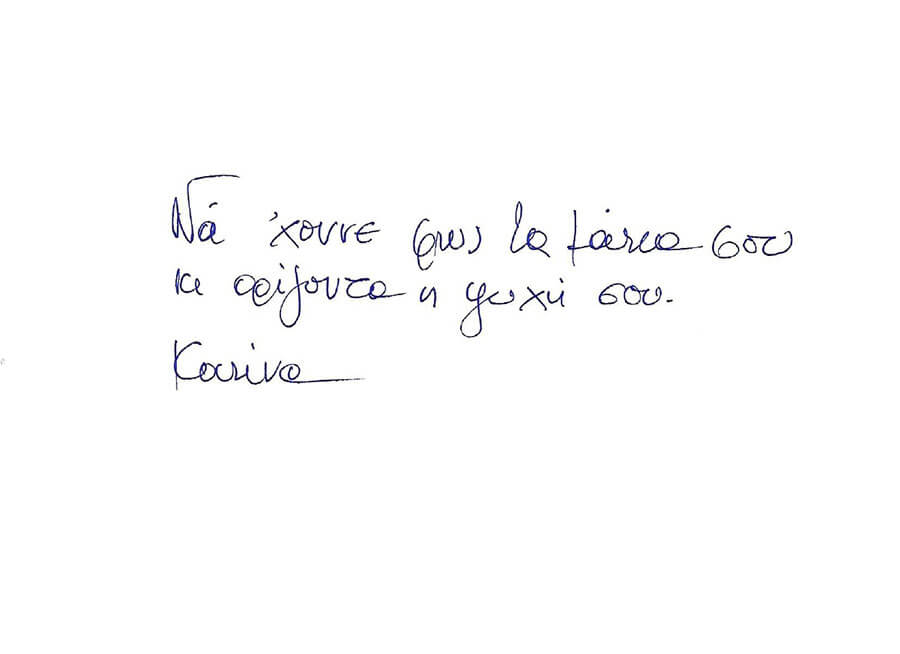 Νά 'χουνε φως τα μάτια σου
κι ορίζοντα η ψυχή σου.
Κατίνα